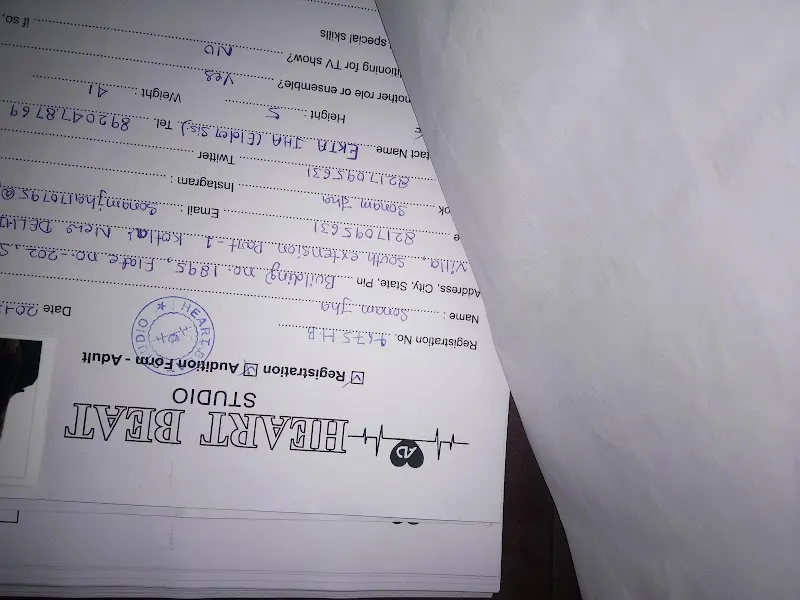 HEART BEAT
STUDIO
Registration Audition Form - Adult
HEART STUDIO
Registration No. 9675 H.B
Date 201
Name : Sonam Jha
Address, City, State, Pin Building no:- 1895, Flate no:- 202, S
Villa, South extension Part-1 Kotla: New DELHI
e 8217095631 Email : Sonamjha170795@
ok Sonam Jha Instagram :
8217095631 Twitter
tact Name EKTA JHA (Elder Sis.) Tel. 8920478769
Height : 5 Weight : 41
nother role or ensemble? Yes
itioning for TV show? NO
special skills if so,